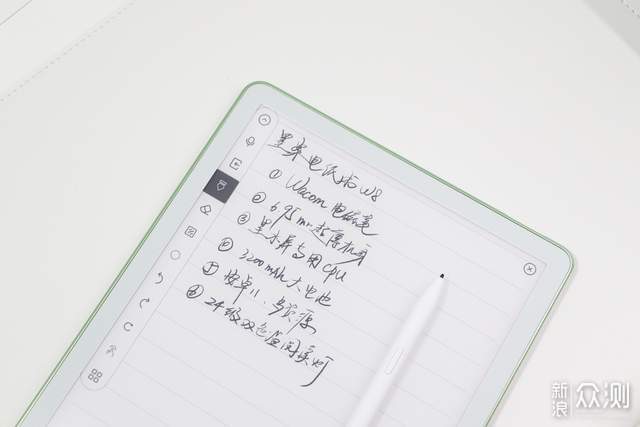 墨案电纸 W8
① Wacom 电磁笔
② 6.95mm超薄机身
③ 墨水屏专用CPU
④ 3200mAh大电池
⑤ 安卓11、多资源
⑥ 24级双色温阅读灯
新浪众测